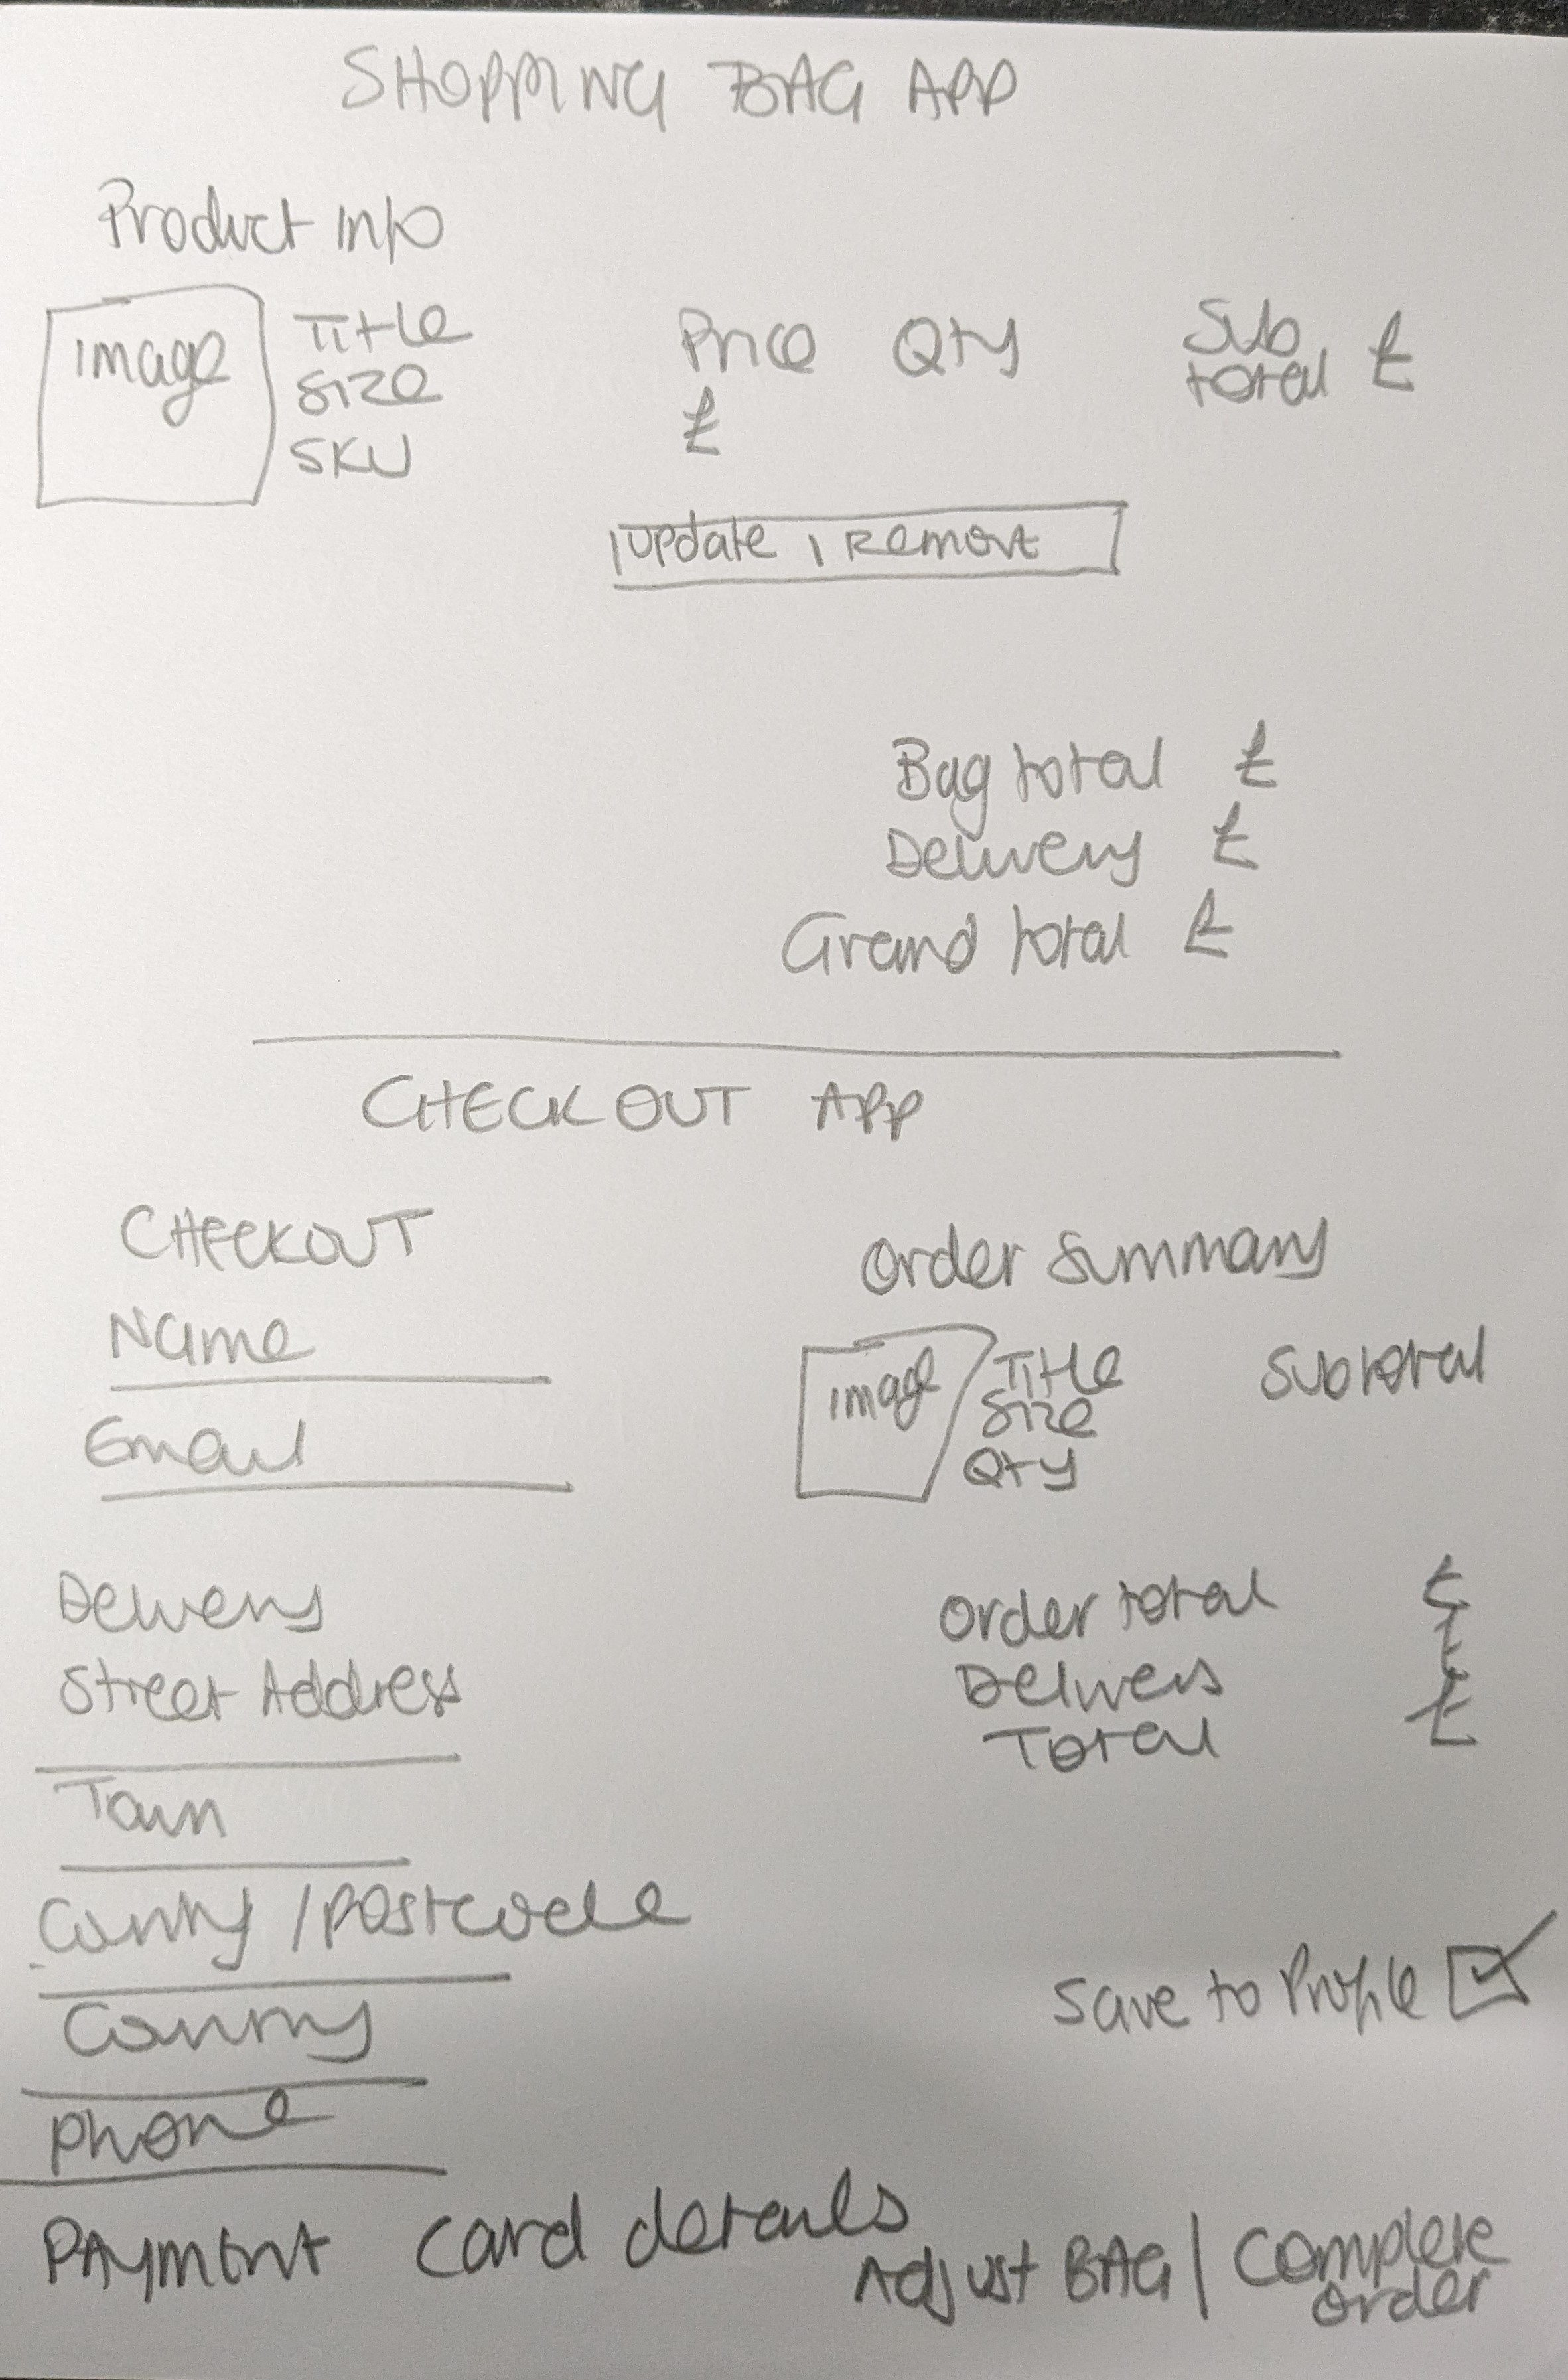 SHOPPING BAG APP
Product Info
image
Title
Size
SKU
Price
£
Qty
Sub
total £
update | Remove
Bag total £
Delivery £
Grand total £
CHECKOUT APP
CHECKOUT
Name
Email
Delivery
Street Address
Town
County / Postcode
Country
Phone
Order Summary
image
Title
Size
Qty
Subtotal
Order total £
Delivery £
Total £
Save to Profile
PAYMENT Card details
Adjust BAG | Complete
order